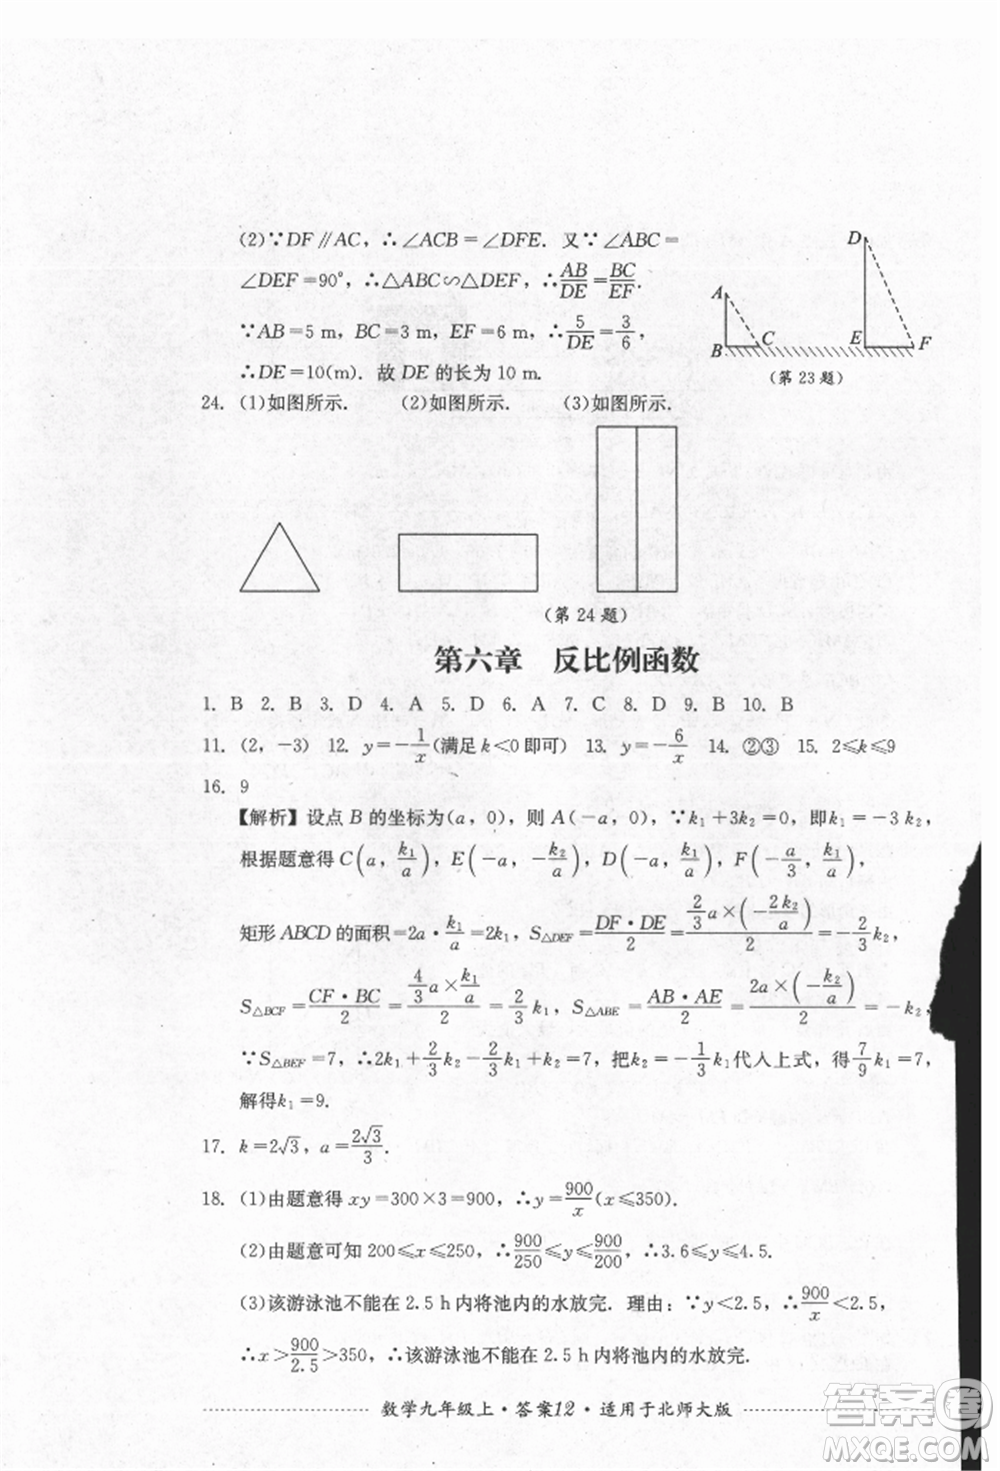 (2)∵DF∥AC，∴∠ACB=∠DFE．又∵∠ABC=
∠DEF=90°，∴△ABC∽△DEF，∴AB/DE=BC/EF.
∵AB=5 m，BC=3 m，EF=6 m，∴5/DE=3/6，
∴DE=10(m)．故 DE 的长为 10 m.
D
A
B
C
E
F
(第 23 题)
24. (1)如图所示． (2)如图所示． (3)如图所示．
(第 24 题)
第六章 反比例函数
1. B 2. B 3. D 4. A 5. D 6. A 7. C 8. D 9. B 10. B
11. (2，-3) 12. y=-1/x(满足 k<0 即可) 13. y=-6/x 14. ②③ 15. 2≤k≤9
16. 9
【解析】设点 B 的坐标为(a，0)，则 A(-a，0)，∵k₁+3k₂=0，即k₁=-3 k₂，
根据题意得 C(a，k₁/a)，E(-a，-k₂/a)，D(-a，k₁/a)，F(-a/3，k₁/a)，
矩形 ABCD 的面积=2a·k₁/a=2k₁，S△DEF=DF·DE/2=(2/3 a×(-2k₂/a))/2=-2/3 k₂，
S△BCF=CF·BC/2=(4/3 a×k₁/a)/2=2/3 k₁，S△ABE=AB·AE/2=(2a×(-k₂/a))/2=-k₂，
∵S△BEF=7，∴2k₁+2/3 k₂-2/3 k₁+k₂=7，把k₂=-1/3 k₁代入上式，得7/9 k₁=7，
解得k₁=9.
17. k=2√3，a=2√3/3.
18. (1)由题意得 xy=300×3=900，∴y=900/x(x≤350).
(2)由题意可知 200≤x≤250，∴900/250≤y≤900/200，∴3.6≤y≤4.5.
(3)该游泳池不能在 2.5 h 内将池内的水放完．理由：∵y<2.5，∴900/x<2.5，
∴x>900/2.5>350，∴该游泳池不能在 2.5 h 内将池内的水放完.
数学九年级上·答案12·适用于北师大版
答案圈
MXQE.COM